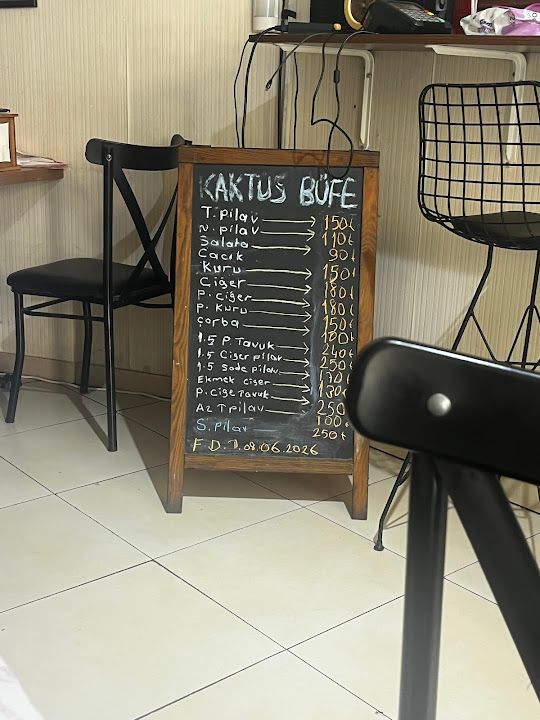 KAKTUS BÜFE
T. Pilav 150₺
N. Pilav 110₺
Salata 90₺
Cacık
Kuru 150₺
Ciğer 180₺
P. Ciğer 180₺
P. Kuru 150₺
Çorba 100₺
1.5 P Tavuk 240₺
1.5 Ciğer pilav 250₺
1.5 Sade pilav 170₺
Ekmek ciğer 130₺
P. Ciğe Tavuk 250₺
Az T Pilav 100₺
S. Pilav 250₺
F.D.T. 08.06.2026